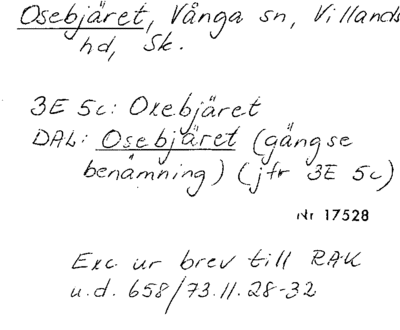 Osebjäret, Vånga sn, Villands
hd, Sk.
3E 5c: Oxebjäret
DAL: Osebjäret (gängse
benämning) (jfr 3E 5c)
Nr 17528
Exc. ur brev till RAK
u.d. 658/73.11.28-32